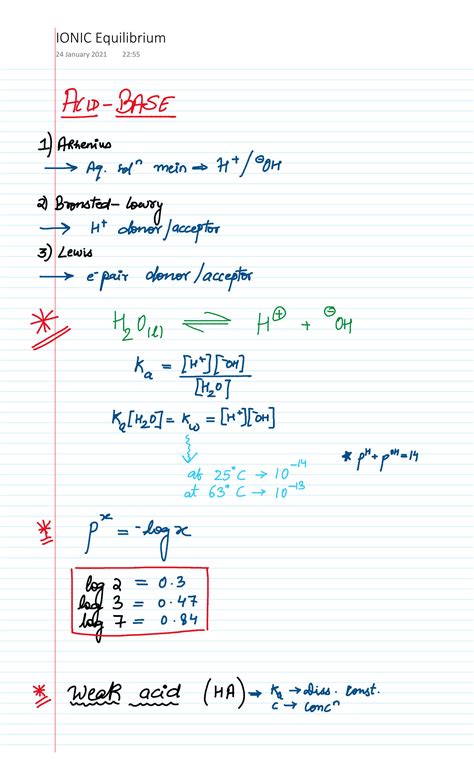 IONIC Equilibrium
24 January 2021 22:55
ACID-BASE
1) Arhenius
→ Aq. solⁿ mein ⇒ H⁺/⊖OH
2) Bronsted-Lowry
→ H⁺ donor/acceptor
3) Lewis
→ e⁻pair donor/acceptor
* H₂O(l) ⇌ H⊕ + ⊖OH
Kₐ = [H⁺][⁻OH]
[H₂O]
Kₐ[H₂O] = K_w = [H⁺][⁻OH]
at 25°C → 10⁻¹⁴
at 63°C → 10⁻¹³
* pᴴ + pᴼᴴ = 14
* pˣ = -log x
log 2 = 0.3
log 3 = 0.47
log 7 = 0.84
* Weak acid (HA) → Kₐ → Diss. Const.
C → Concⁿ